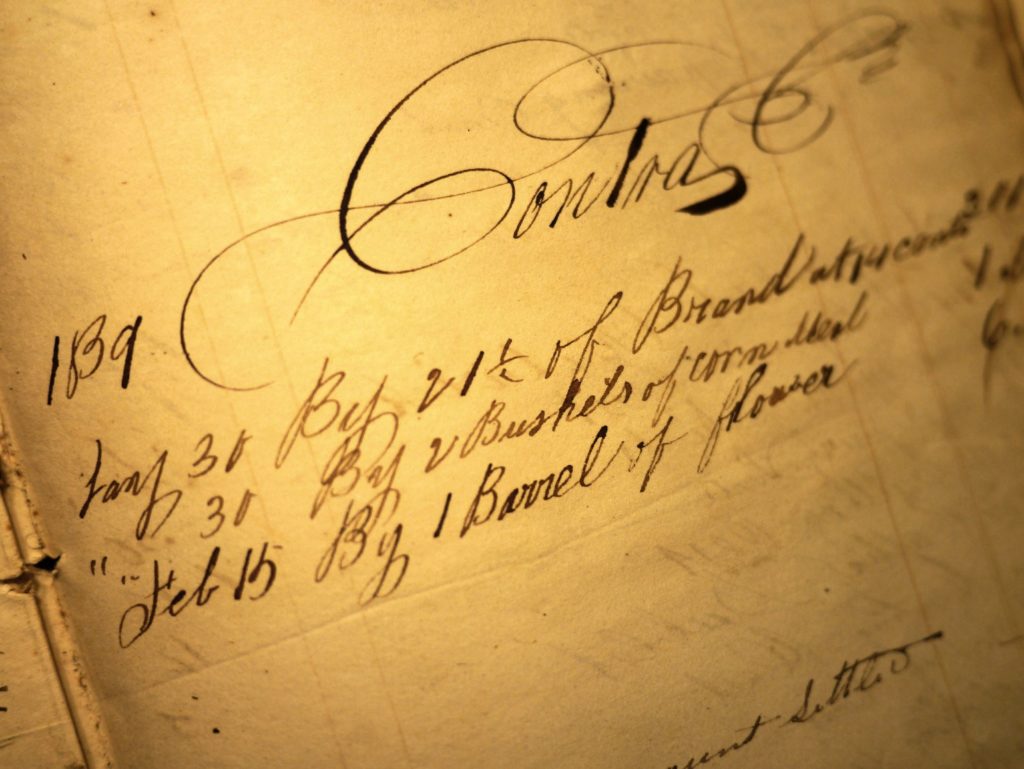 Contra Cr
1839
Jany 30 By 21½ of Brand at 14 cents 300
" 30 By 2 Bushels of corn Meal 1
" Feb 15 By 1 Barrel of flower 6
Settled